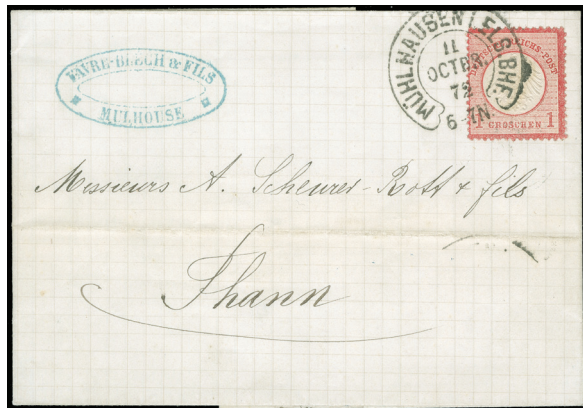 FAVRE-BLECH & FILS
MULHOUSE
MÜHLHAUSEN ELS BHF.
11
OCTBR.
72
6-7N.
DEUTSCHE REICHS-POST
1 GROSCHEN 1
Messieurs A. Scheurer-Rott & fils
Thann